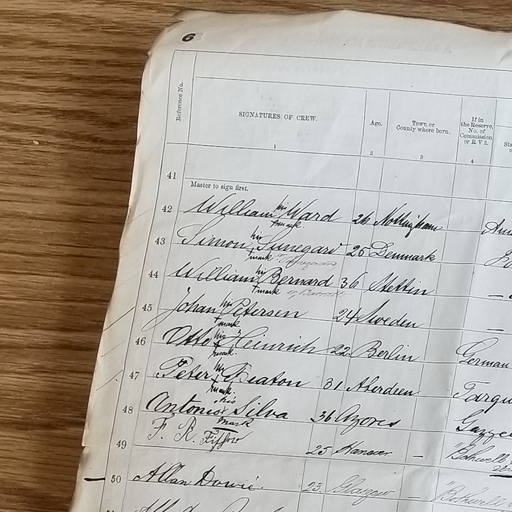 6
Reference No.
SIGNATURES OF CREW.
Age.
Town or
County where born.
If in
the Reserve,
No. of
Commission
or R V 2.
1
2
3
4
41
Master to sign first.
42 William his Ward 26 Nottingham
mark
43 Simon his Sunegard 20 Denmark
mark
44 William his Bernard 36 Stettin —
mark
45 Johan his Petersen 24 Sweden —
mark
46 Otto his Heinrich 22 Berlin German
mark
47 Peter his Deaton 31 Aberdeen
mark
48 Antonio his Silva 36 Azores
mark
49 F. R. 25 Hanover —
50 Allan Dowie 23 Glasgow —